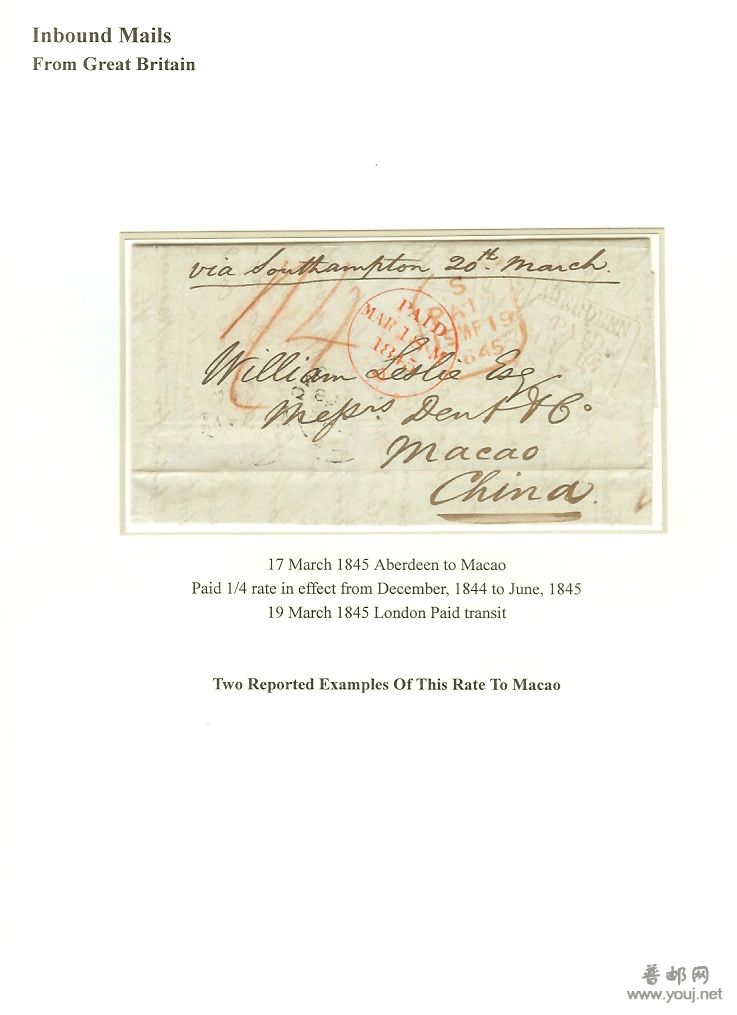 Inbound Mails
From Great Britain
via Southampton 20th March.
1/4
PAID
MAR 1
1845
S
PAI
MR 19
1845
ABERDEEN
William Leslie Esq
Messrs Dent & Co
Macao
China.
17 March 1845 Aberdeen to Macao
Paid 1/4 rate in effect from December, 1844 to June, 1845
19 March 1845 London Paid transit
Two Reported Examples Of This Rate To Macao
普邮网
www.youj.net